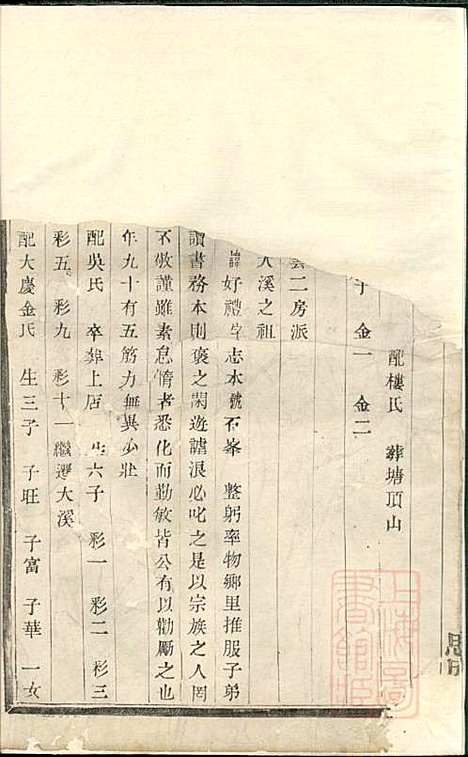 配樓氏 葬塘頂山
子 金一 金二
二房派
大溪之祖
諱好禮字志本號石峯 整躬率物鄉里推服子弟
讀書務本則褒之閑遊謔浪必叱之是以宗族之人罔
不敬謹雖素怠惰者悉化而勤敏皆公有以勸勵之也
年九十有五筋力無異少壯
配吳氏 卒葬上店 生六子 彩一 彩二 彩三
彩五 彩九 彩十一繼遷大溪
配大慶金氏 生三子 子旺 子富 子華 一女
上海圖書館藏